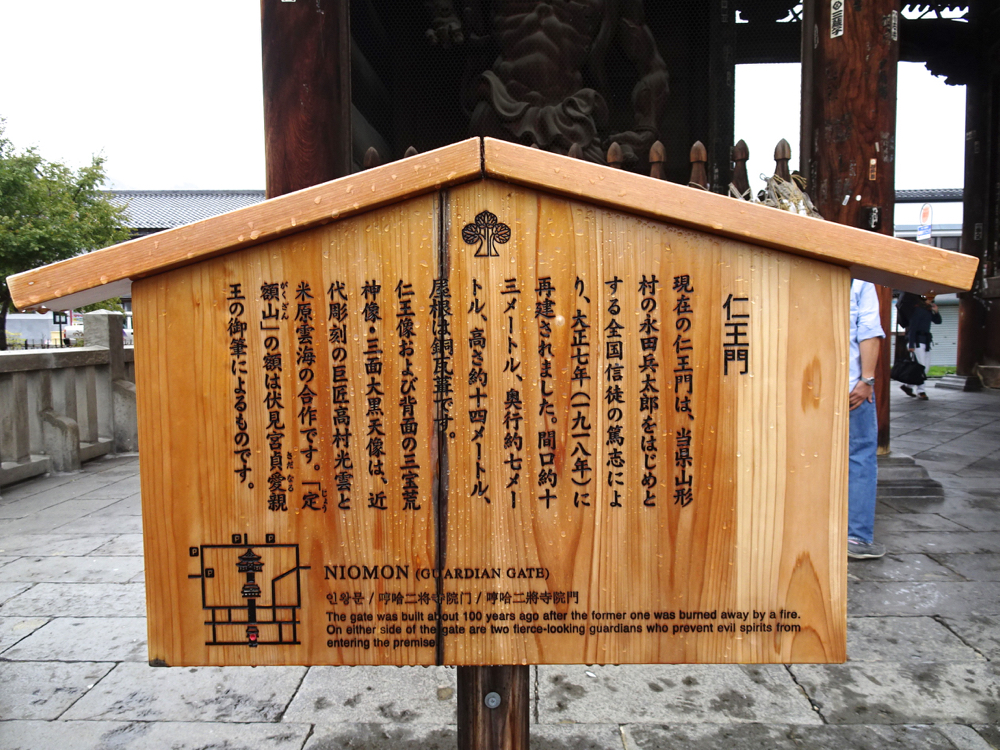 仁王門
現在の仁王門は、当県山形
村の永田兵太郎をはじめと
する全国信徒の篤志によ
り、大正七年(一九一八年)に
再建されました。間口約十
三メートル、奥行約七メー
トル、高さ約十四メートル、
屋根は銅瓦葺です。
仁王像および背面の三宝荒
神像・三面大黒天像は、近
代彫刻の巨匠高村光雲と
米原雲海の合作です。「定
じょう
額山」の額は伏見宮貞愛親
がくざん
さだなる
王の御筆によるものです。
P P P
P
NIOMON (GUARDIAN GATE)
인왕문 / 哼哈二将寺院门 / 哼哈二將寺院門
The gate was built about 100 years ago after the former one was burned away by a fire.
On either side of the gate are two fierce-looking guardians who prevent evil spirits from
entering the premise